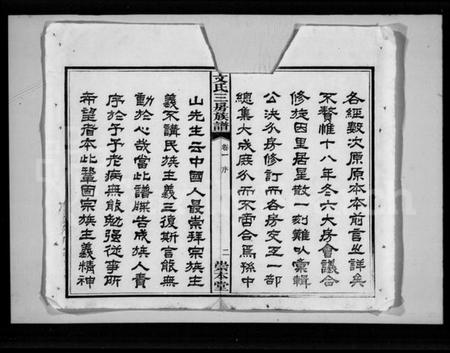 各經數次原原本本前言之詳矣
不贅惟十八年冬六大房會議合
修族因里居星散一刻難以彙輯
公決分房修訂而各房交互一部
總集大成庶分而不啻合焉孫中
文氏三房族譜
卷一 序
二
崇本堂
山先生云中國人最崇拜宗族主
義不講民族主義三復斯言能無
動於心哉當此譜牒告成族人責
序於予予老病無能勉强從事所
希望者本此鞏固宗族主義精神